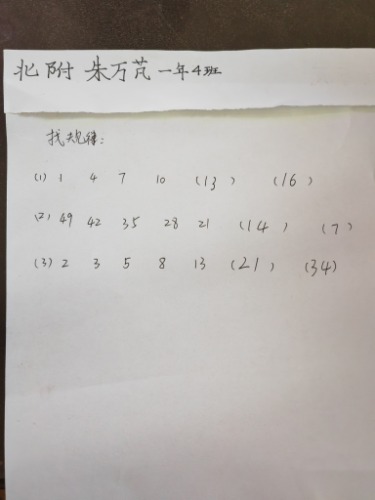 北附 朱万芃 一年4班
找规律:
(1) 1 4 7 10 (13) (16)
(2) 49 42 35 28 21 (14) (7)
(3) 2 3 5 8 13 (21) (34)